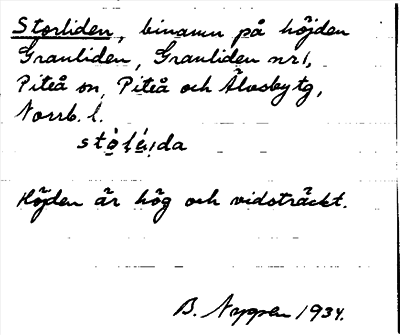 Storliden, binamn på höjden
Granliden, Granliden nr 1,
Piteå sn, Piteå och Älvsby tg,
Norrb. l.
Höjden är hög och vidsträckt.
B. Nyppen 1934.